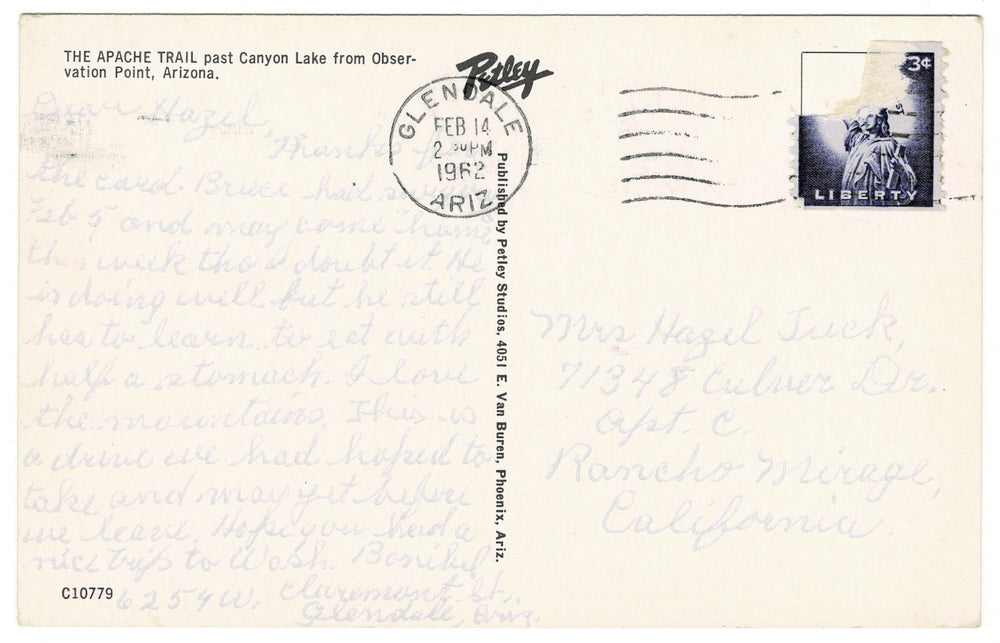 THE APACHE TRAIL past Canyon Lake from Obser-
vation Point, Arizona.
Petley
GLENDALE
FEB 14
2 30 PM
1962
ARIZ
3¢
LIBERTY
Dear Hazel,
Thanks for
the card. Bruce had surgery
Feb 5 and may come home
this week tho I doubt it. He
is doing well but he still
has to learn to eat with
half a stomach. I love
the mountains. This is
a drive we had hoped to
take and may yet before
we leave. Hope you had a
nice trip to Wash.
6259 W. Claremont St.
Glendale, Ariz.
Published by Petley Studios, 4051 E. Van Buren, Phoenix, Ariz.
Mrs Hazel Tuck,
71348 Culver Dr.
Apt. C.
Rancho Mirage,
California.
C10779